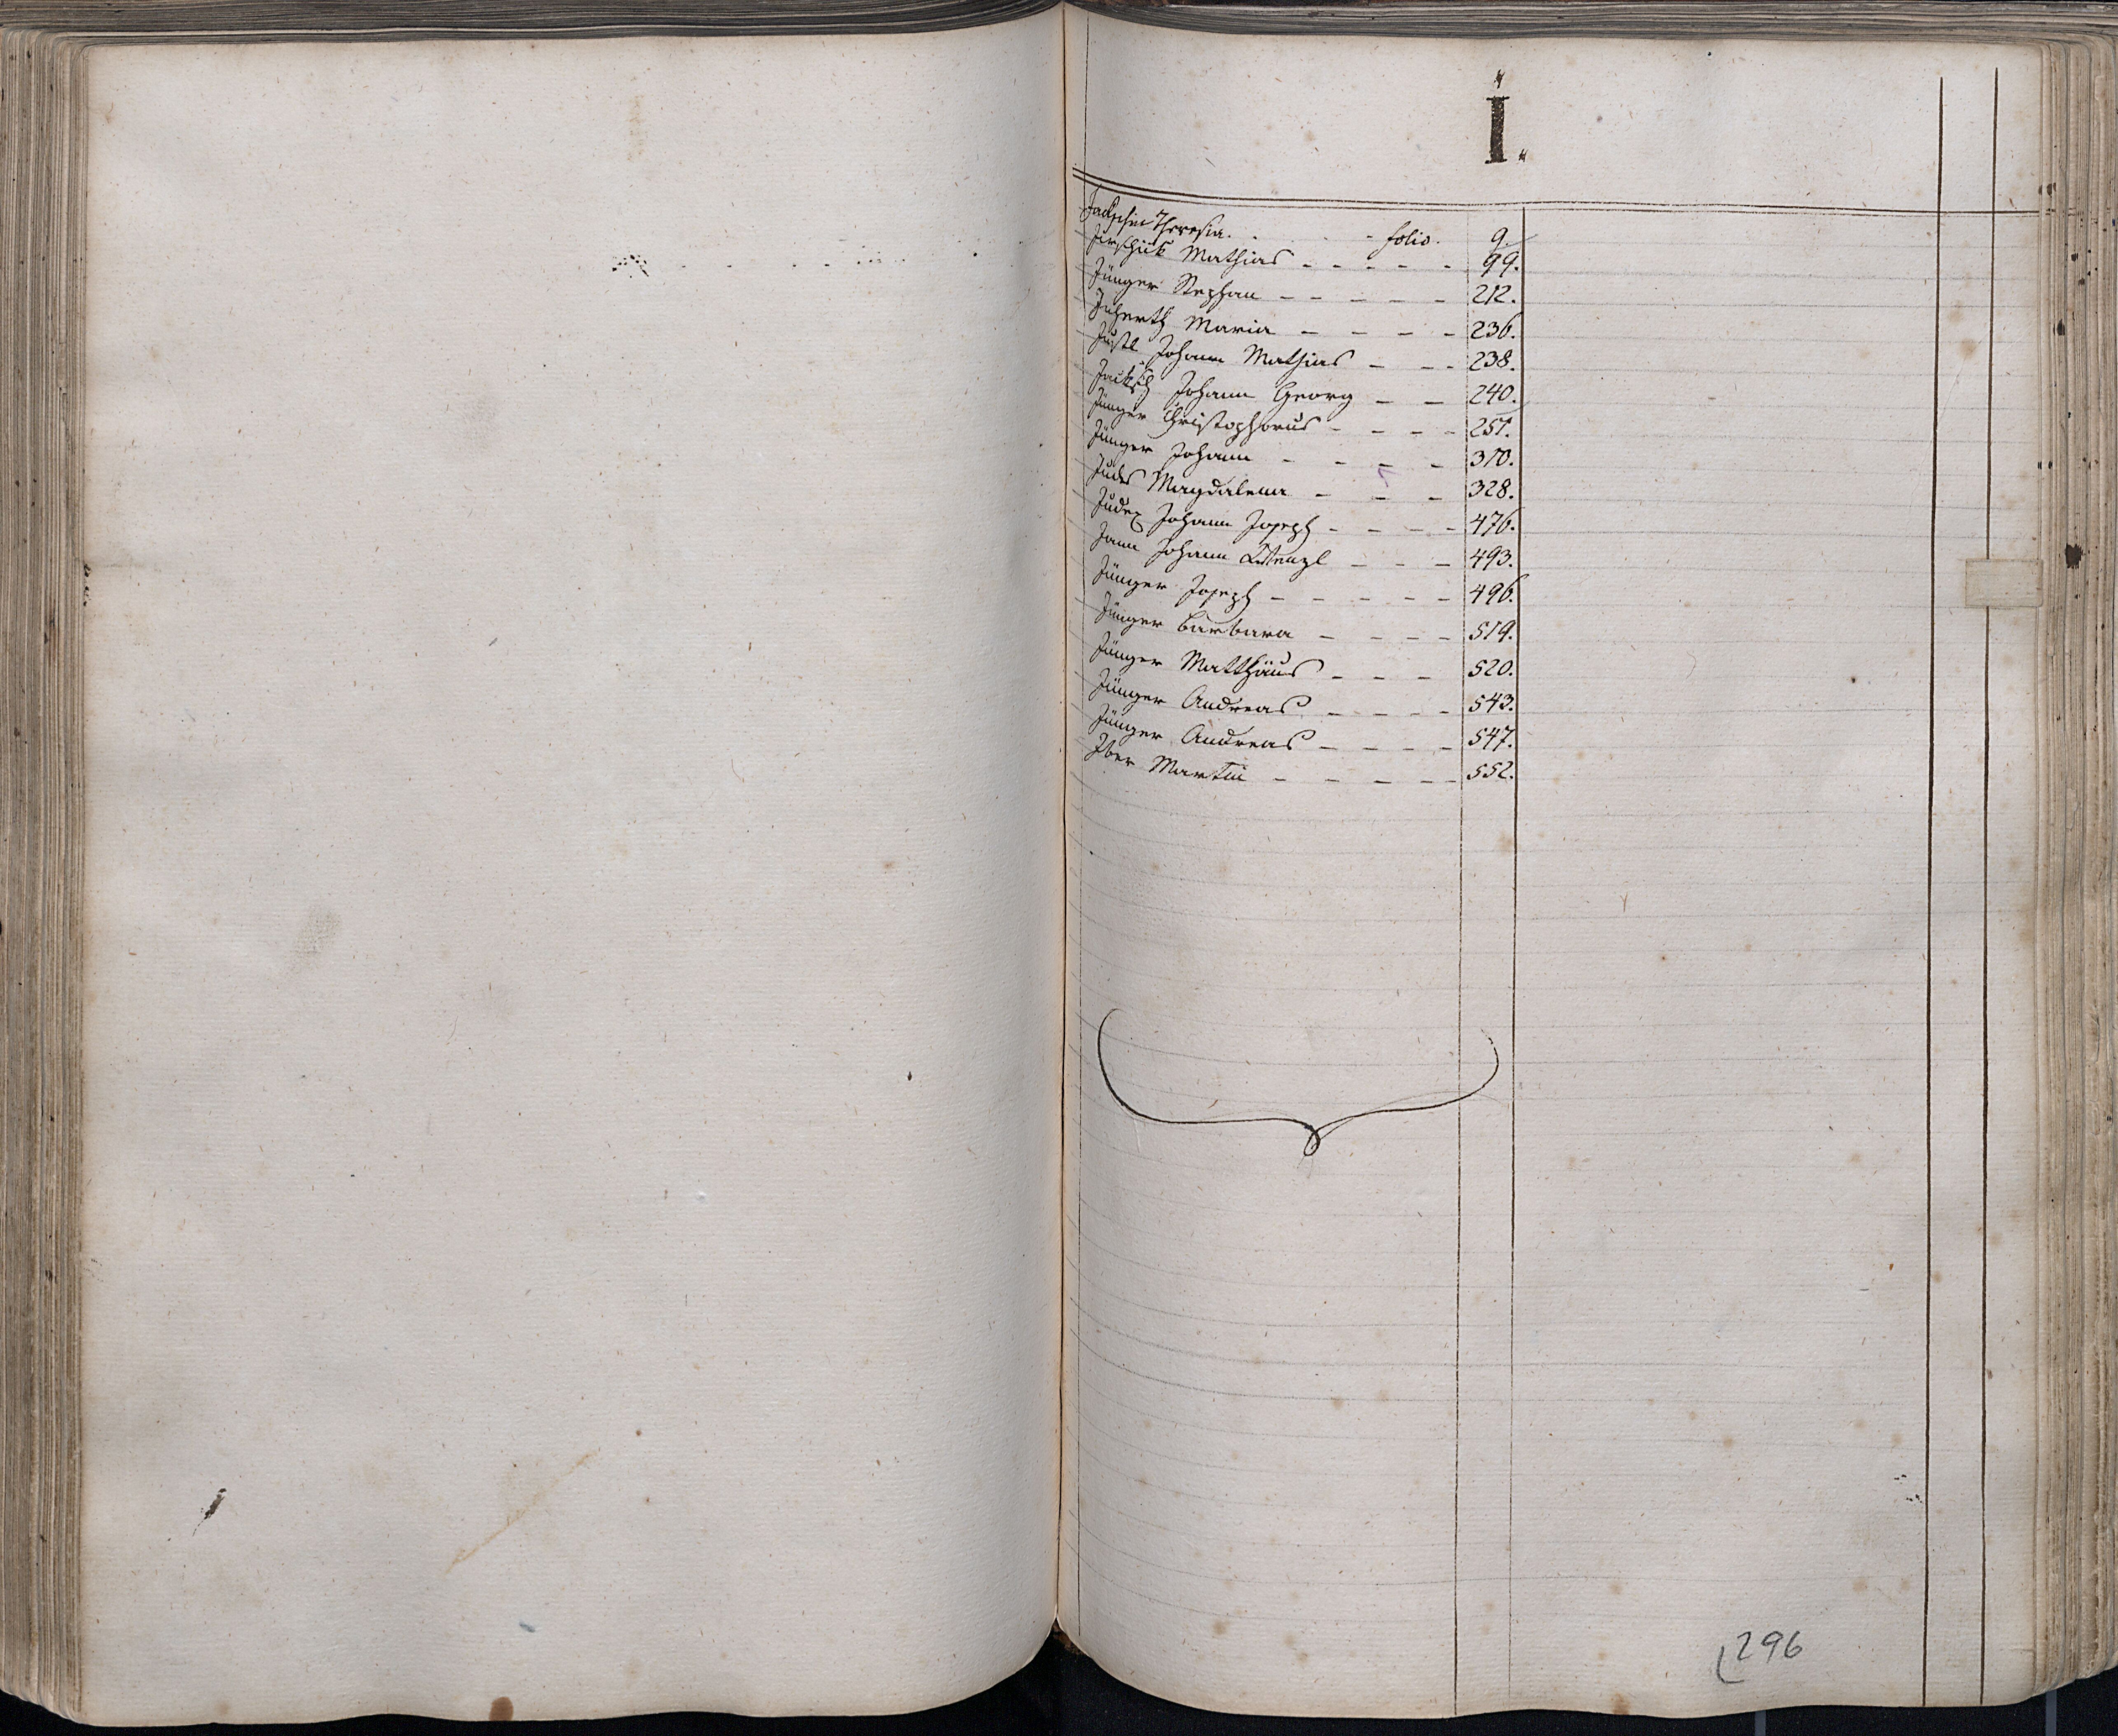 I.
Theresia - folio. 9.
Mathias - - - - - 99.
Jünger Stephan - - - - - 212.
Maria - - - - 236.
Justl Johann Mathias - - - 238.
Jacksch Johann Georg - - 240.
Jünger Christophorus - - - - 251.
Jünger Johann - - - - 310.
Magdalena - - - 328.
Judex Johann Joseph - - - - 476.
Jann Johann Wenzl - - - 493.
Jünger Joseph - - - - - 496.
Jünger Barbara - - - - 519.
Jünger Matthäus - - - 520.
Jünger Andreas - - - - 543.
Jünger Andreas - - - - 547.
Iber Martin - - - - - 552.
296